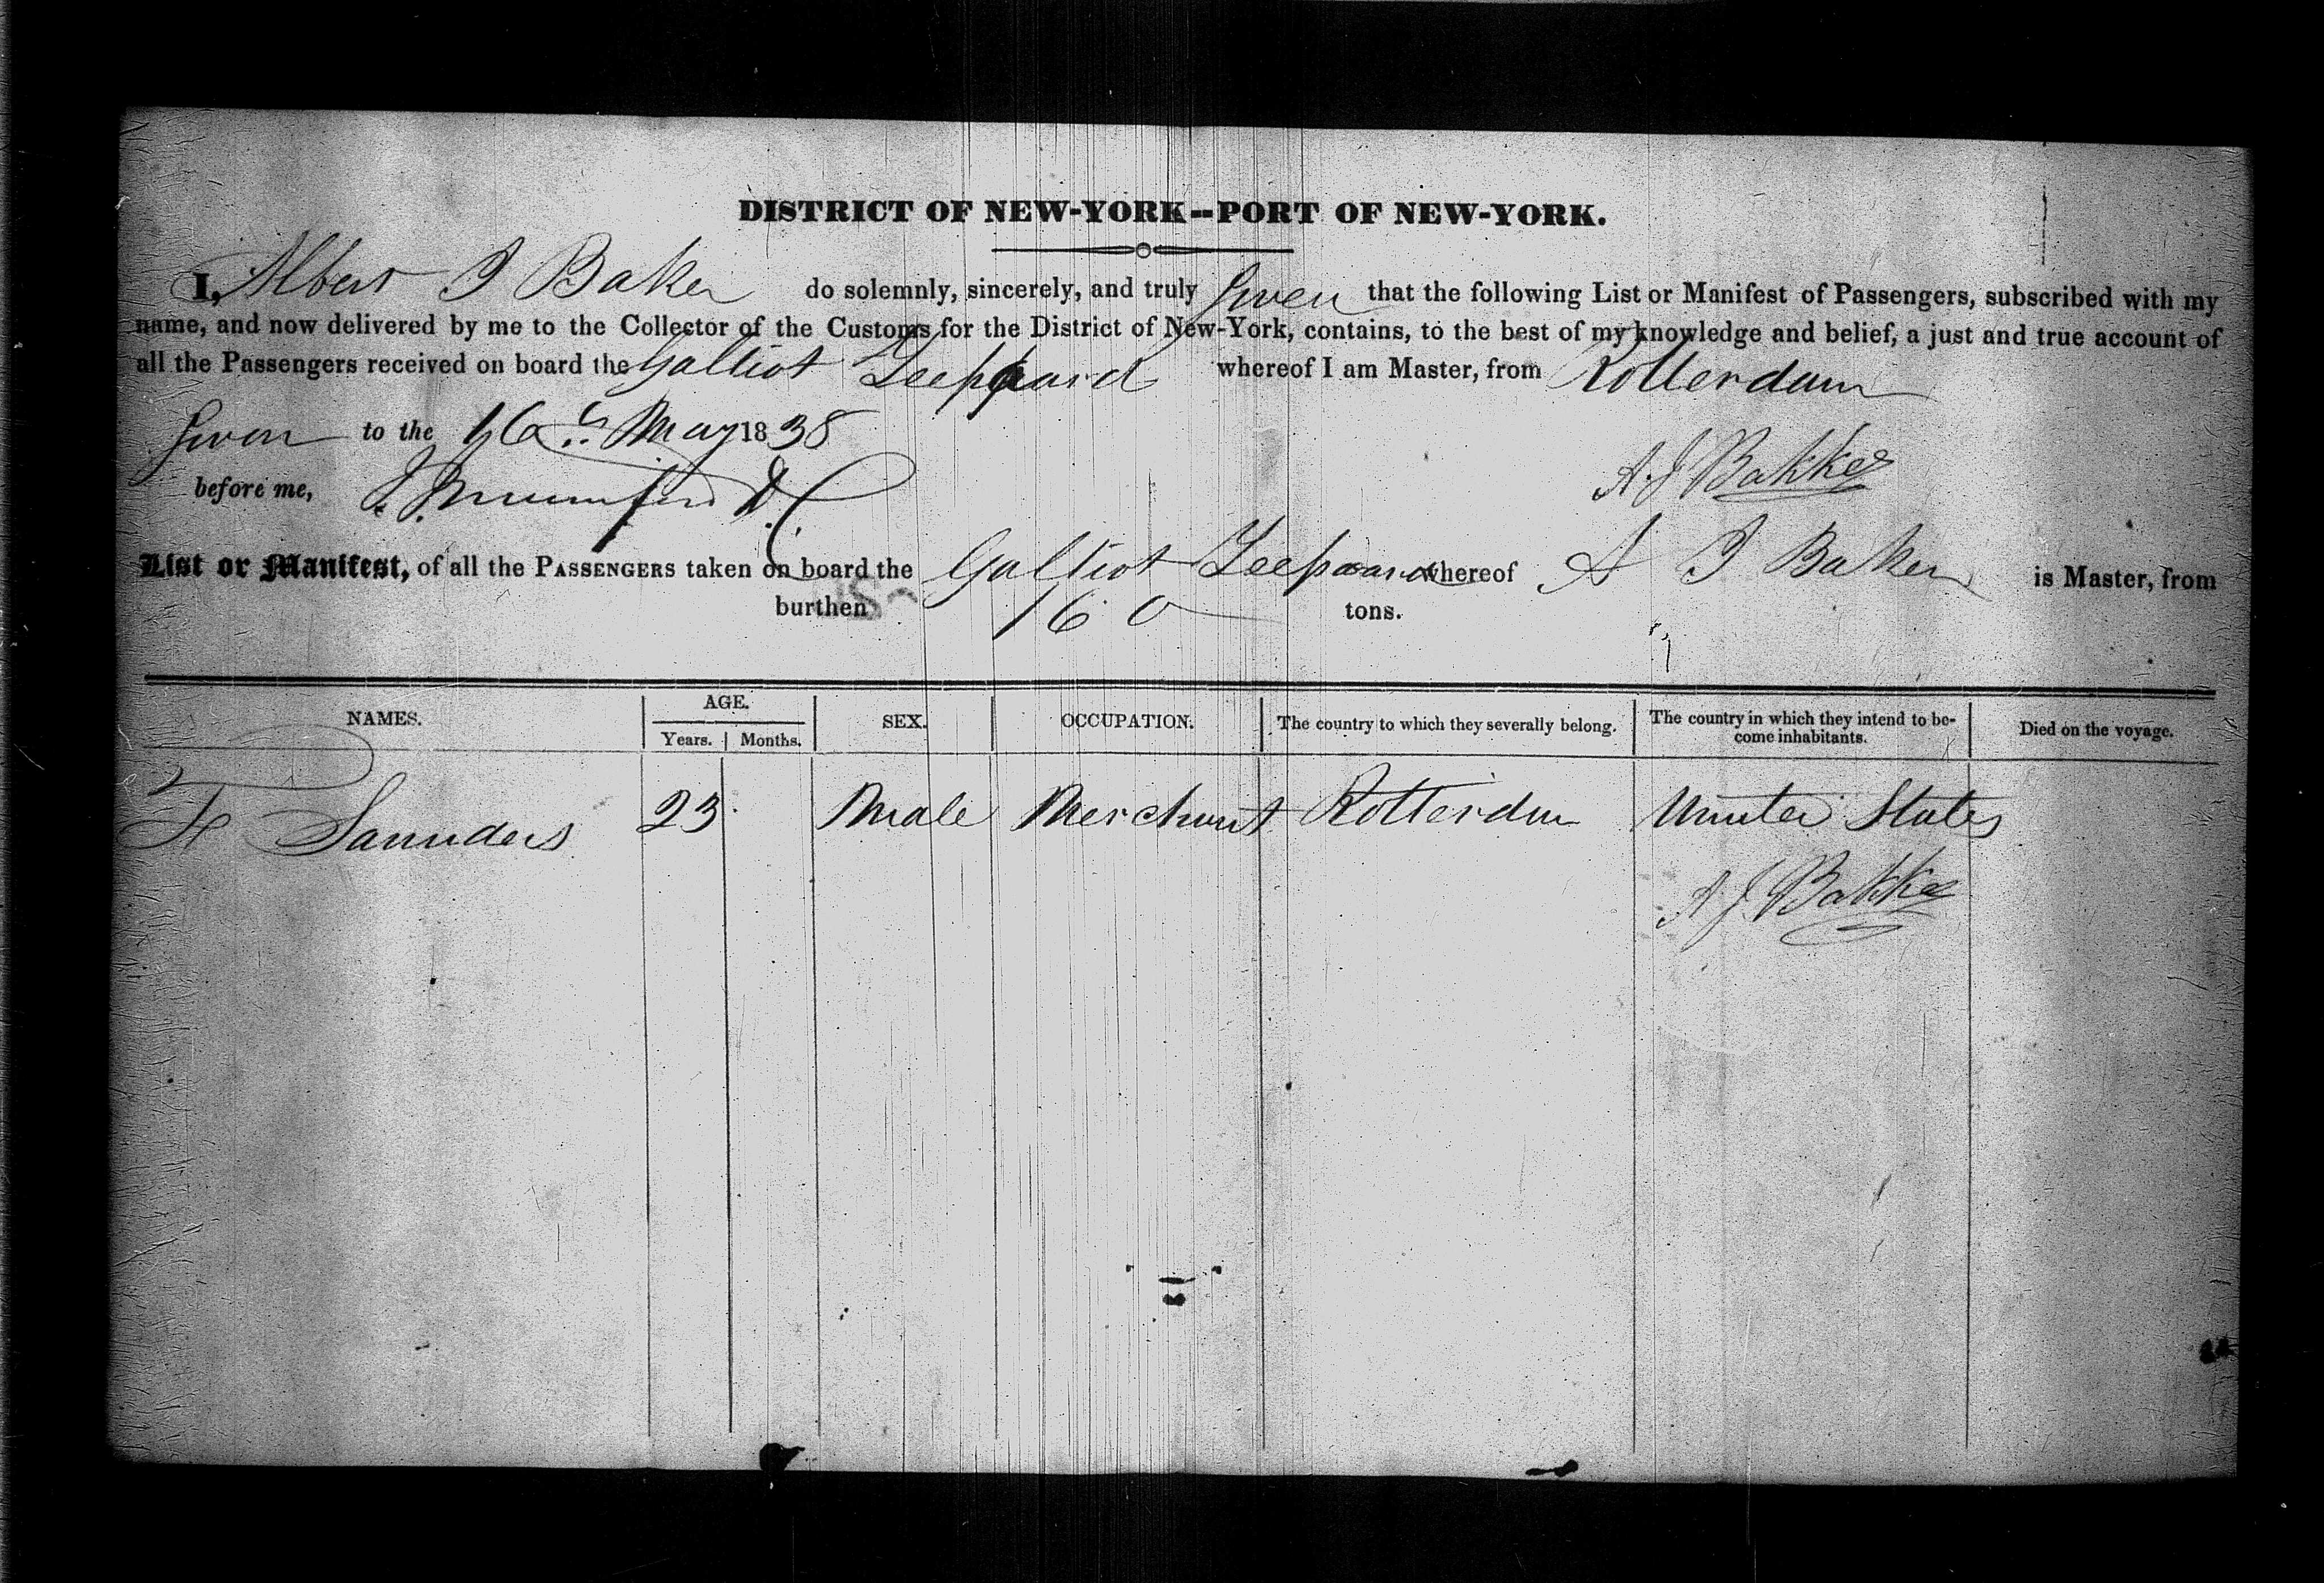 DISTRICT OF NEW-YORK--PORT OF NEW-YORK.
I, Albert J Baker do solemnly, sincerely, and truly Swear that the following List or Manifest of Passengers, subscribed with my
name, and now delivered by me to the Collector of the Customs for the District of New-York, contains, to the best of my knowledge and belief, a just and true account of
all the Passengers received on board the Galliot Zeepaard whereof I am Master, from Rotterdam
Sworn to the 16th May 1838
A. J. Bakker
before me,
List or Manifest, of all the PASSENGERS taken on board the Galliot Zeepaard whereof A J Baker is Master, from
burthen 160 tons.
NAMES. AGE. Years. Months. SEX. OCCUPATION. The country to which they severally belong. The country in which they intend to be-come inhabitants. Died on the voyage.
F Saunders 23 Male Merchant Rotterdm Uniter States
A J Bakker